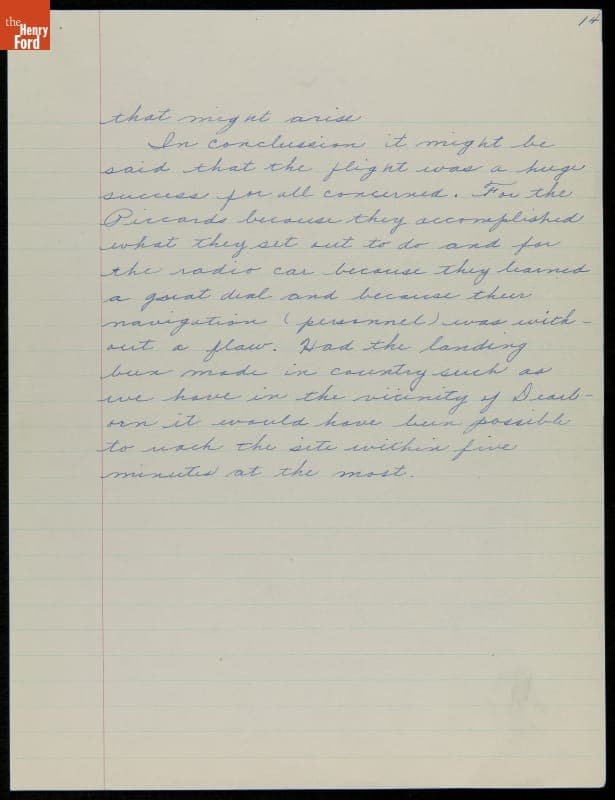 the
Henry
Ford
14
that might arise
In conclussion it might be
said that the flight was a huge
success for all concerned. For the
Piccards because they accomplished
what they set out to do and for
the radio car because they learned
a great deal and because their
navigation (personnel) was with-
out a flaw. Had the landing
been made in country such as
we have in the vicinity of Dearb-
orn it would have been possible
to reach the site within five
minutes at the most.